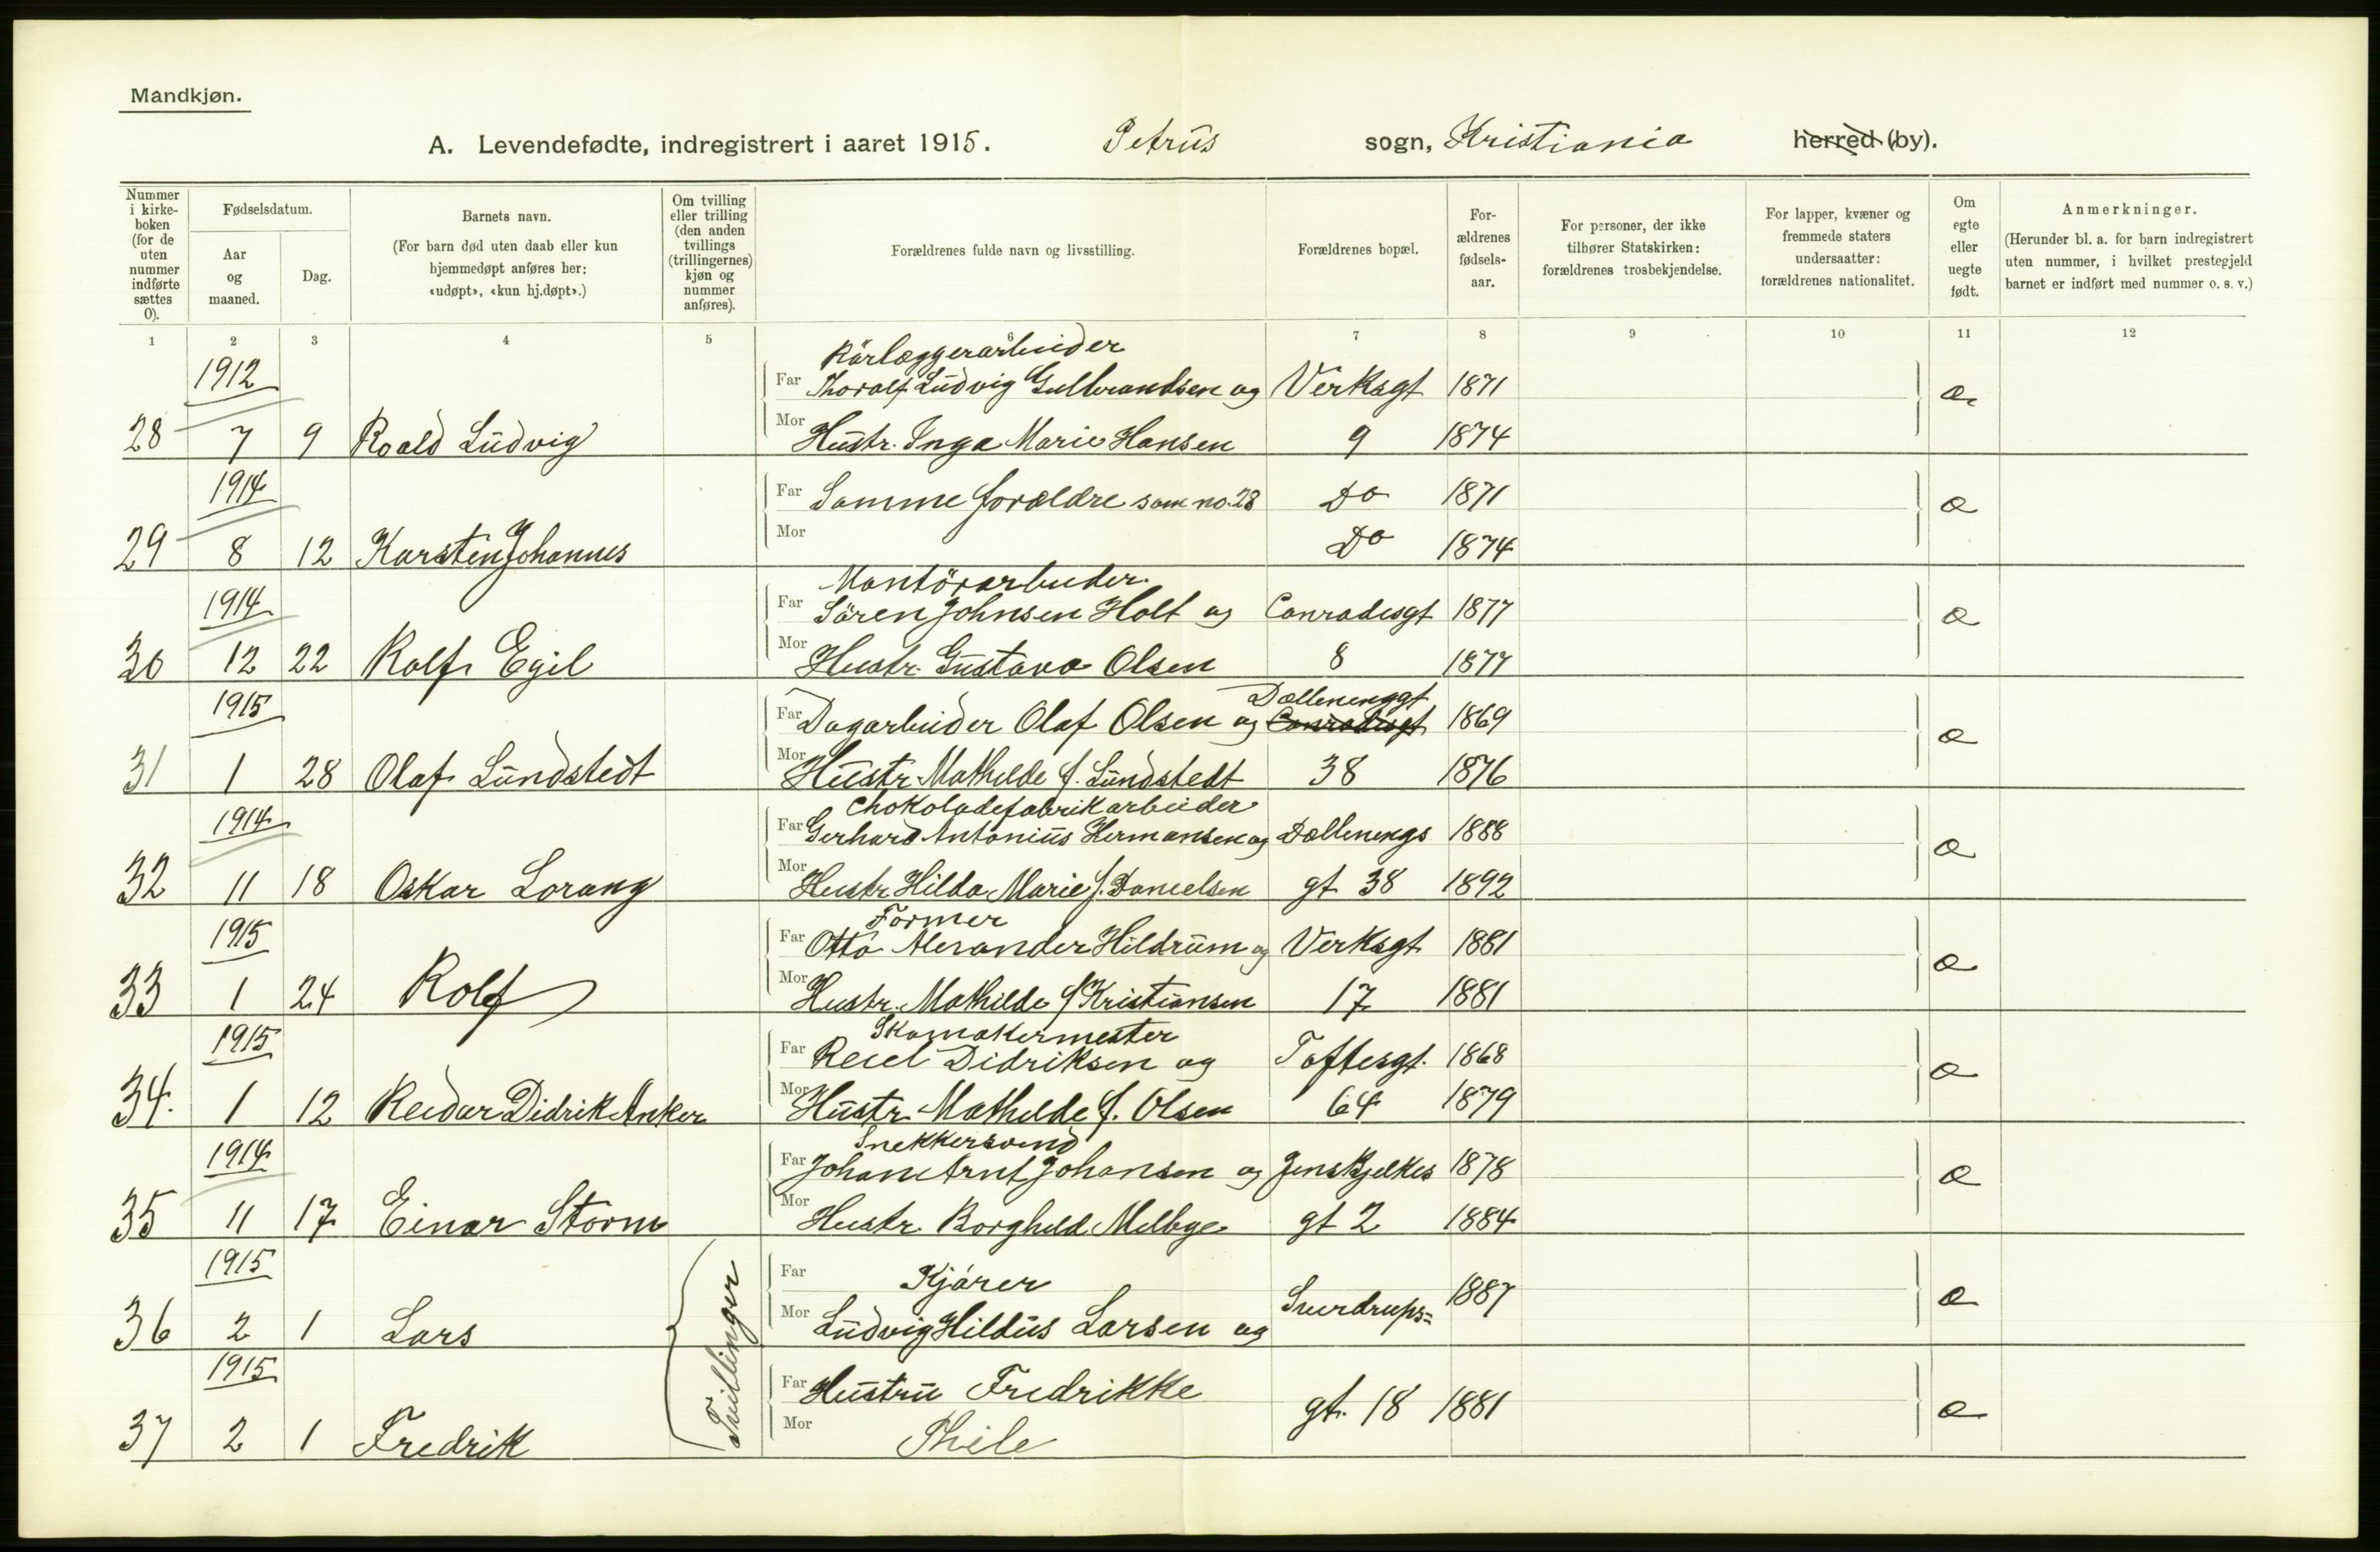 Mandkjøn.
A. Levendefødte, indregistrert i aaret 1915. Petrus sogn, Kristiania herred (by).
Nummer i kirke-boken (for de uten nummer indførte sættes 0).
Fødselsdatum.
Aar og maaned.
Dag.
Barnets navn.
(For barn død uten daab eller kun hjemmedøpt anføres her: «udøpt», «kun hj.døpt».)
Om tvilling eller trilling (den anden tvillings (trillingernes) kjøn og nummer anføres).
Forældrenes fulde navn og livsstilling.
Forældrenes bopæl.
For-ældrenes fødsels-aar.
For personer, der ikke tilhører Statskirken: forældrenes trosbekjendelse.
For lapper, kvæner og fremmede staters undersaatter: forældrenes nationalitet.
Om egte eller uegte født.
Anmerkninger.
(Herunder bl. a. for barn indregistrert uten nummer, i hvilket prestegjeld barnet er indført med nummer o. s. v.)
1 2 3 4 5 6 7 8 9 10 11 12
Rörlæggerarbeider
1912 Far Thoralf Ludvig Gulbrandsen og Verksgt 1871 æ
28 7 9 Roald Ludvig Mor Hustr. Inga Marie Hansen 9 1874
1914 Far Samme forældre som no. 28 Do 1871 æ
29 8 12 Karsten Johannes Mor Do 1874
Montörarbeider.
1914 Far Sören Johnsen Holt og Conradisgt 1877 æ
30 12 22 Rolf Egil Mor Hustr. Gustava Olsen 8 1877
Dællenenggt
1915 Far Dagarbeider Olaf Olsen og Conradisgt 1869 æ
31 1 28 Olaf Lundstedt Mor Hustr. Mathilde f. Lundstedt 38 1876
Chokoladefabrikarbeider
1914 Far Gerhard Antonius Hermansen og Dællenengs 1888 æ
32 11 18 Oskar Lorang Mor Hustr Hilda Marie f. Danielsen gt 38 1892
Former
1915 Far Otto Alexander Hildrum og Verksgt 1881 æ
33 1 24 Rolf Mor Hustr. Mathilde f Kristiansen 17 1881
Skomakermester
1915 Far Reiel Didriksen og Toftesgt. 1868 æ
34. 1 12 Reidar Didrik Anker Mor Hustr. Mathilde f. Olsen 64 1879
Snekkersvend
1914 Far Johan Arnt Johansen og Jens Bjelkes 1878 æ
35 11 17 Einar Storm Mor Hustr. Borghild Melbye gt 2 1884
1915 Far Kjörer
36 2 1 Lars Tvillinger Mor Ludvig Hildus Larsen og Sverdrups= 1887 æ
1915 Far Hustru Fredrikke
37 2 1 Fredrik Mor Thile gt. 18 1881 æ